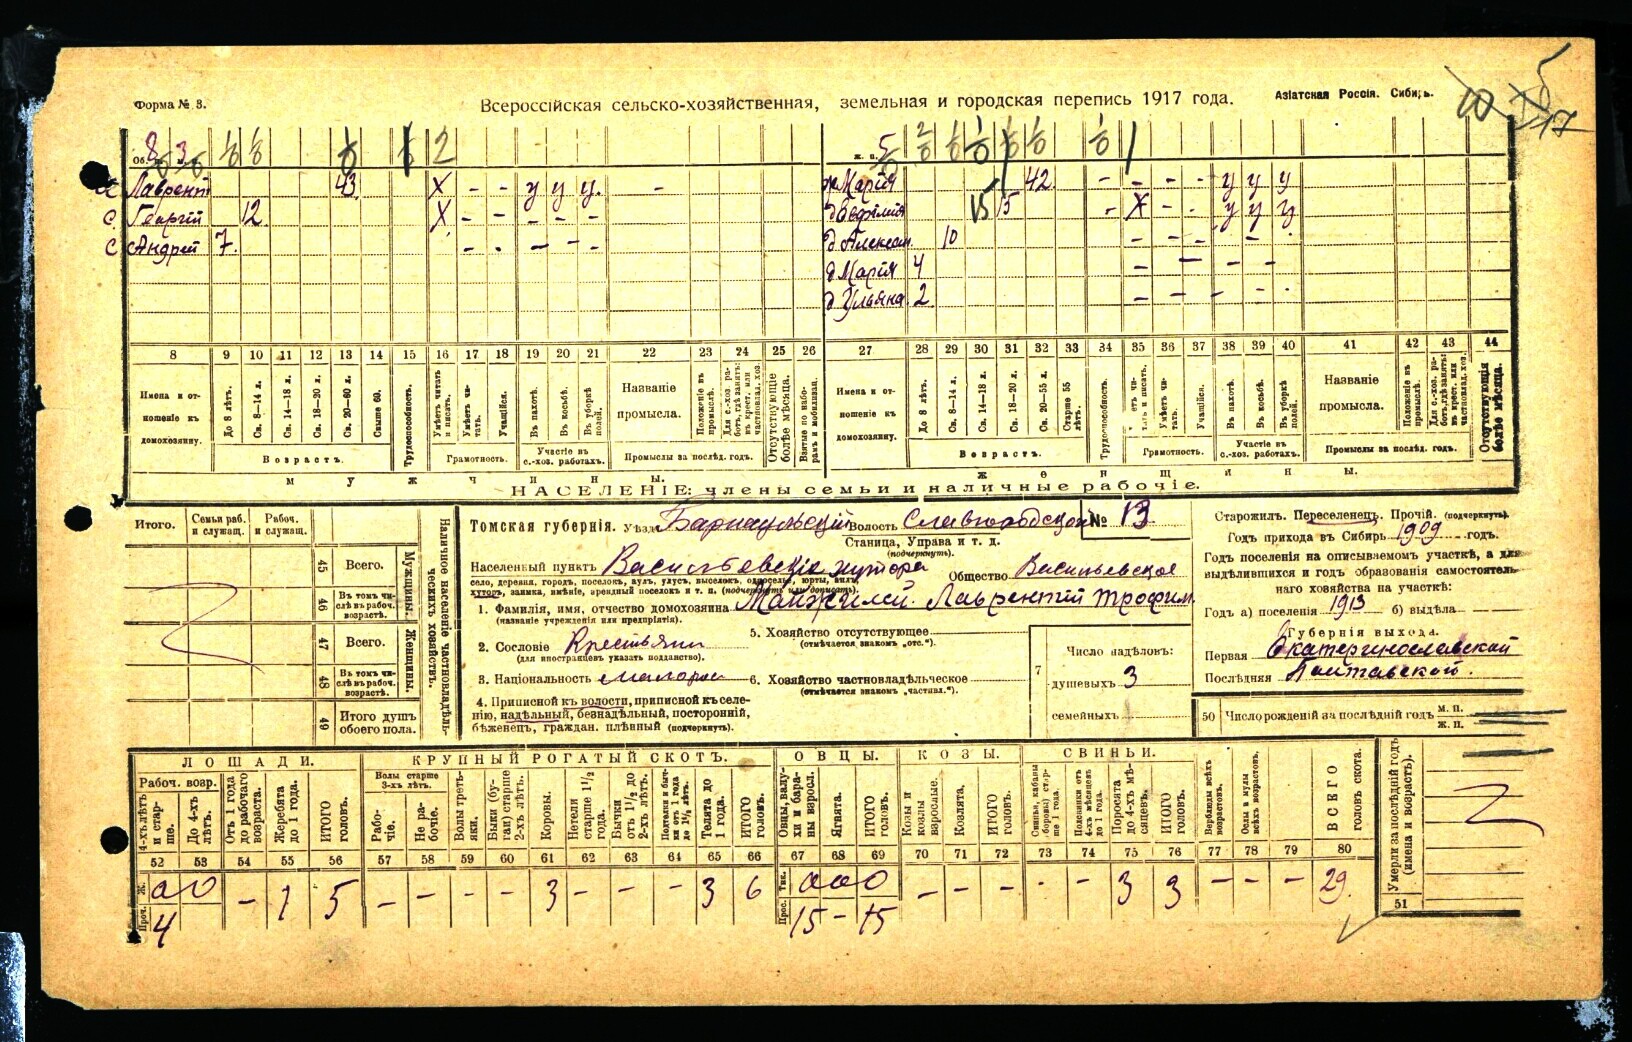 Форма № 3.
Всероссійская сельско-хозяйственная, земельная и городская перепись 1917 года.
Азіатская Россія. Сибирь.
8 3
2
5
Лаврент 43 X - - у у у. -
с. Георгій 12 X - - - - -
с Андрей 7. - - - - -
ж Марія 42 - - - - у у у
д Евфимія 15 15 - X - - у у у
д Алексан. 10 - - - - -
д Марія 4 - - - - -
д Ульяна 2 - - - - -
8 9 10 11 12 13 14 15 16 17 18 19 20 21 22 23 24 25 26 27 28 29 30 31 32 33 34 35 36 37 38 39 40 41 42 43 44
Имена и отношеніе къ домохозяину.
До 8 лѣтъ.
Св. 8—14 л.
Св. 14—18 л.
Св. 18—20 л.
Св. 20—60 л.
Свыше 60.
Возрастъ.
Трудоспособность.
Умѣетъ читать и писать.
Умѣетъ читать.
Учащійся.
Грамотность.
Въ пахотѣ.
Въ косьбѣ.
Въ уборкѣ полей.
Участіе въ с.-хоз. работахъ.
Названіе промысла.
Положеніе въ промыслѣ.
Для с.-хоз. работъ, гдѣ занятъ: въ крест. или частновлад. хоз.
Промыслы за послѣд. годъ.
Отсутствующіе болѣе мѣсяца.
Взятые по наборамъ и мобилизац.
Имена и отношеніе къ домохозяину.
До 8 лѣтъ.
Св. 8—14 л.
Св. 14—18 л.
Св. 18—20 л.
Св. 20—55 л.
Старше 55 лѣтъ.
Возрастъ.
Трудоспособность.
Умѣетъ читать и писать.
Умѣетъ читать.
Учащійся.
Грамотность.
Въ пахотѣ.
Въ косьбѣ.
Въ уборкѣ полей.
Участіе въ с.-хоз. работахъ.
Названіе промысла.
Положеніе въ промыслѣ.
Для с.-хоз. работъ, гдѣ заняты: въ крест. или частновлад. хоз.
Промыслы за послѣд. годъ.
Отсутствующія болѣе мѣсяца.
мужчины.
женщины.
НАСЕЛЕНІЕ: члены семьи и наличные рабочіе.
Итого.
Семьи раб. и служащ.
Рабоч. и служащ.
45 Всего.
46 Въ томъ числѣ въ рабоч. возрастѣ.
Мужчины.
47 Всего.
48 Въ томъ числѣ въ рабоч. возрастѣ.
Женщины.
49 Итого душъ обоего пола.
Наличное населеніе частновладѣльческихъ хозяйствъ.
Томская губернія. Уѣздъ Барнаульскій Волость Славгородская № 13
Станица, Управа и т. д.
(подчеркнуть).
Населенный пунктъ Васильевскіе хутора Общество Васильевское
село, деревня, городъ, поселокъ, аулъ, улусъ, выселокъ, односелье, юрты, аилъ,
хуторъ, заимка, имѣніе, арендный поселокъ и т. п. (подчеркнуть или дописать).
1. Фамилія, имя, отчество домохозяина Манжилей Лаврентій Трофим.
(названіе учрежденія или предпріятія).
2. Сословіе Крестьяни
(для иностранцевъ указать подданство).
5. Хозяйство отсутствующее
(отмѣчается знакомъ „отс.").
3. Національность малорос
6. Хозяйство частновладѣльческое
(отмѣчается знакомъ „частвл.").
4. Приписной къ волости, приписной къ селенію, надѣльный, безнадѣльный, посторонній, бѣженецъ, граждан. плѣнный (подчеркнуть).
7
Число надѣловъ:
душевыхъ 3
семейныхъ
Старожилъ. Переселенецъ. Прочій. (подчеркнуть).
Годъ прихода въ Сибирь 1909 годъ.
Годъ поселенія на описываемомъ участкѣ, а для
выдѣлившихся и годъ образованія самостоятельнаго хозяйства на участкѣ:
Годъ а) поселенія 1913 б) выдѣла
Губернія выхода.
Первая Екатеринославской
Послѣдняя Полтавской.
50 Число рожденій за послѣдній годъ м. п. ж. п.
ЛОШАДИ.
Рабоч. возр.
4-хъ лѣтъ и старше.
До 4-хъ лѣтъ.
Отъ 1 года до рабочаго возраста.
Жеребята до 1 года.
ИТОГО головъ.
КРУПНЫЙ РОГАТЫЙ СКОТЪ.
Волы старше 3-хъ лѣтъ.
Рабочіе.
Не рабочіе.
Волы третьяки.
Быки (бугаи) старше 2-хъ лѣтъ.
Коровы.
Нетели старше 1½ года.
Бычки отъ 1½ до 2-хъ лѣтъ.
Полтелки и бычки отъ 1 года до 1½ лѣтъ.
Телята до 1 года.
ИТОГО головъ.
ОВЦЫ.
Овцы, валухи и бараны взросл.
Ягнята.
ИТОГО головъ.
КОЗЫ.
Козы и козлы взрослые.
Козлята.
ИТОГО головъ.
СВИНЬИ.
Свиньи, кабаны (боровы) старше 1 года.
Подсвинки отъ 4-хъ мѣсяцевъ до 1 года.
Поросята до 4-хъ мѣсяцевъ.
ИТОГО головъ.
Верблюды всѣхъ возрастовъ.
Ослы и мулы всѣхъ возрастовъ.
ВСЕГО головъ скота.
Умерли за послѣдній годъ (имена и возрастъ).
52 53 54 55 56 57 58 59 60 61 62 63 64 65 66 67 68 69 70 71 72 73 74 75 76 77 78 79 80 51
Ж. - 1 5 - - - - 3 - - - 3 6 Тнк. - - - - - 3 3 - - - 29
Проч. 4 Прос. 15 - 15